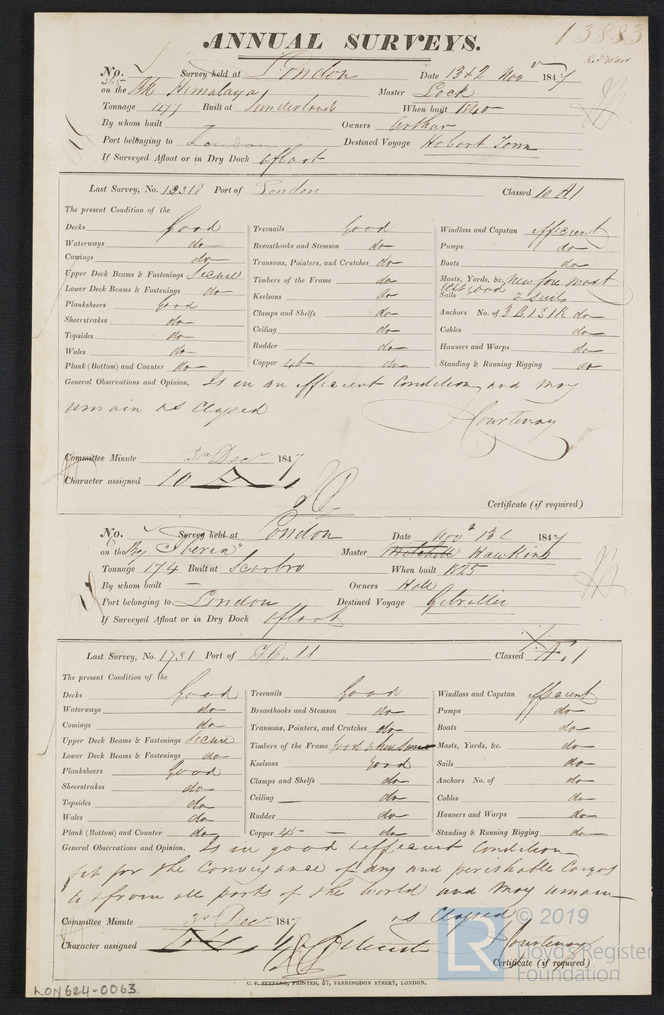 13883
ANNUAL SURVEYS.
No. 365 Survey held at London Date 13 & 2 Nov 1847
on the Bk Himalaya Master Lock
Tonnage 477 Built at Sunderland When built 1840
By whom built Owners Arthur
Port belonging to London Destined Voyage Hobart Town
If Surveyed Afloat or in Dry Dock afloat
Last Survey, No. 13318 Port of London Classed 10 A1
The present Condition of the
Decks Good
Waterways do
Comings do
Upper Deck Beams & Fastenings Secure
Lower Deck Beams & Fastenings do
Planksheers Good
Sheerstrakes do
Topsides do
Wales do
Plank (Bottom) and Counter do
Treenails Good
Breasthooks and Stemson do
Transoms, Pointers, and Crutches do
Timbers of the Frame do
Keelsons do
Clamps and Shelfs do
Ceiling do
Rudder do
Copper 46 do
Windlass and Capstan efficient
Pumps do
Boats do
Masts, Yards, &c. New fore mast
rest good
Sails 2 suits
Anchors No. of 3 B. 1 S 1 K do
Cables do
Hawsers and Warps do
Standing & Running Rigging do
General Observations and Opinion, Is in an efficient Condition and may
remain as classed
Courtenay
Committee Minute 3rd Decr 1847
Character assigned 10 A 1
Certificate (if required)
No. Survey held at London Date Nov 2 1847
on the Bg Iberia Master Mitchell Hawkins
Tonnage 174 Built at Scarbro When built 1825
By whom built — Owners Hall
Port belonging to London Destined Voyage Gibralter
If Surveyed Afloat or in Dry Dock afloat
Last Survey, No. 1731 Port of Hull Classed Æ 1
The present Condition of the
Decks Good
Waterways do
Comings do
Upper Deck Beams & Fastenings Secure
Lower Deck Beams & Fastenings do
Planksheers Good
Sheerstrakes do
Topsides do
Wales do
Plank (Bottom) and Counter do
Treenails Good
Breasthooks and Stemson do
Transoms, Pointers, and Crutches do
Timbers of the Frame Good
Keelsons Good
Clamps and Shelfs do
Ceiling — do
Rudder do
Copper 45 — do
Windlass and Capstan efficient
Pumps do
Boats do
Masts, Yards, &c. do
Sails do
Anchors No. of do
Cables do
Hawsers and Warps do
Standing & Running Rigging do
General Observations and Opinion, Is in good & efficient Condition
fit for the conveyance of dry and perishable Cargos
to & from all parts of the world and may remain
as classed
Courtenay
Committee Minute 3rd Decr 1847
Character assigned
Certificate (if required)
C. F. SEYFANG, PRINTER, 57, FARRINGDON STREET, LONDON.
LON624-0063
LR
© 2019
Lloyd's Register
Foundation